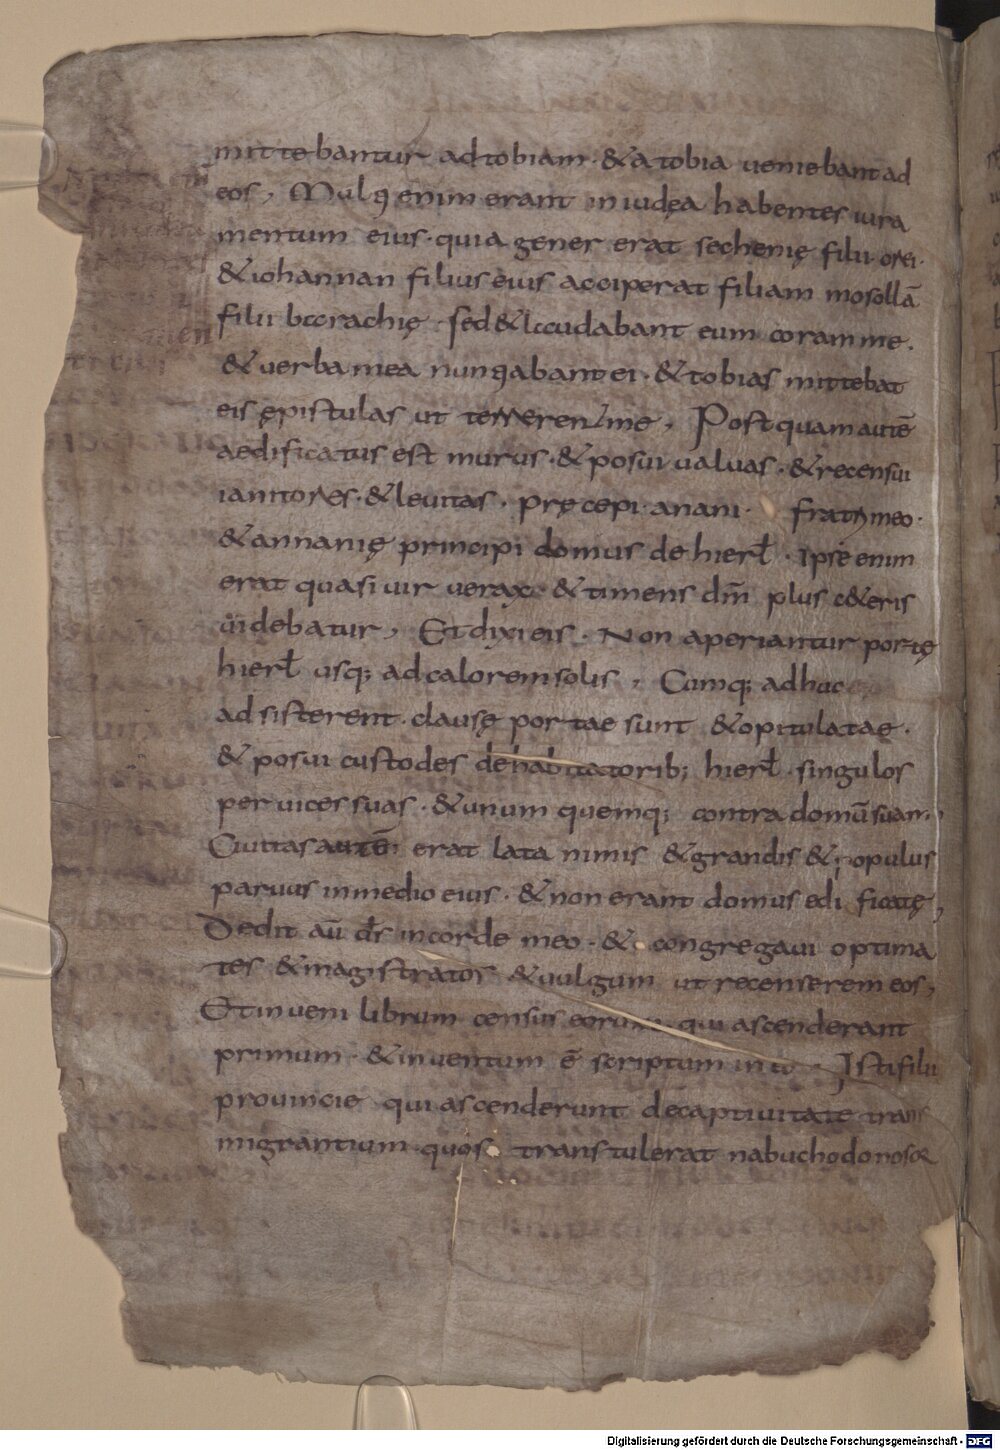 mittebantur ad tobiam · & a tobia ueniebant ad
eos, Mul enim erant in iudęa habentes iura
mentum eius · quia gener erat sechenię filii orei ·
& iohannan filius eius acciperat filiam mosollā
filii bccrachię · sed & laudabant eum coram me ·
& uerba mea nun abant ei · & tobias mittebat
eis ępistulas ut terrerent me, Postquam autē
aedificatus est murus · & posui ualuas · & recensui
ianitores · & leuitas · pręcepi · anani · fratri meo ·
& annanię principi domus de hierł · ipse enim
erat quasi uir uerax & timens dm̄ plus c&eris
uidebatur, Et dixi eis · Non aperiantur portę
hierł usq; ad calorem solis, Cumq; adhuc
adsisterent · clausę portae sunt & opitulatae ·
& posui custodes de habitatorib; hierł · singulos
per uices suas · & unum quemq; contra domū suam,
Ciuitas autē erat lata nimis & grandis & populus
paruus in medio eius · & non erant domus edificatę,
Dedit aū dś in corde meo · & congregaui optima
tes & magistratos & uulgum ut recenserem eos,
Et inueni librum census eorum qui ascenderant
primum · & inuentum ē scriptum in eo · Isti filii
prouincie qui ascenderunt de captiuitate trans
migrantium · quos transtulerat nabuchodonosor
Digitalisierung gefördert durch die Deutsche Forschungsgemeinschaft · DFG